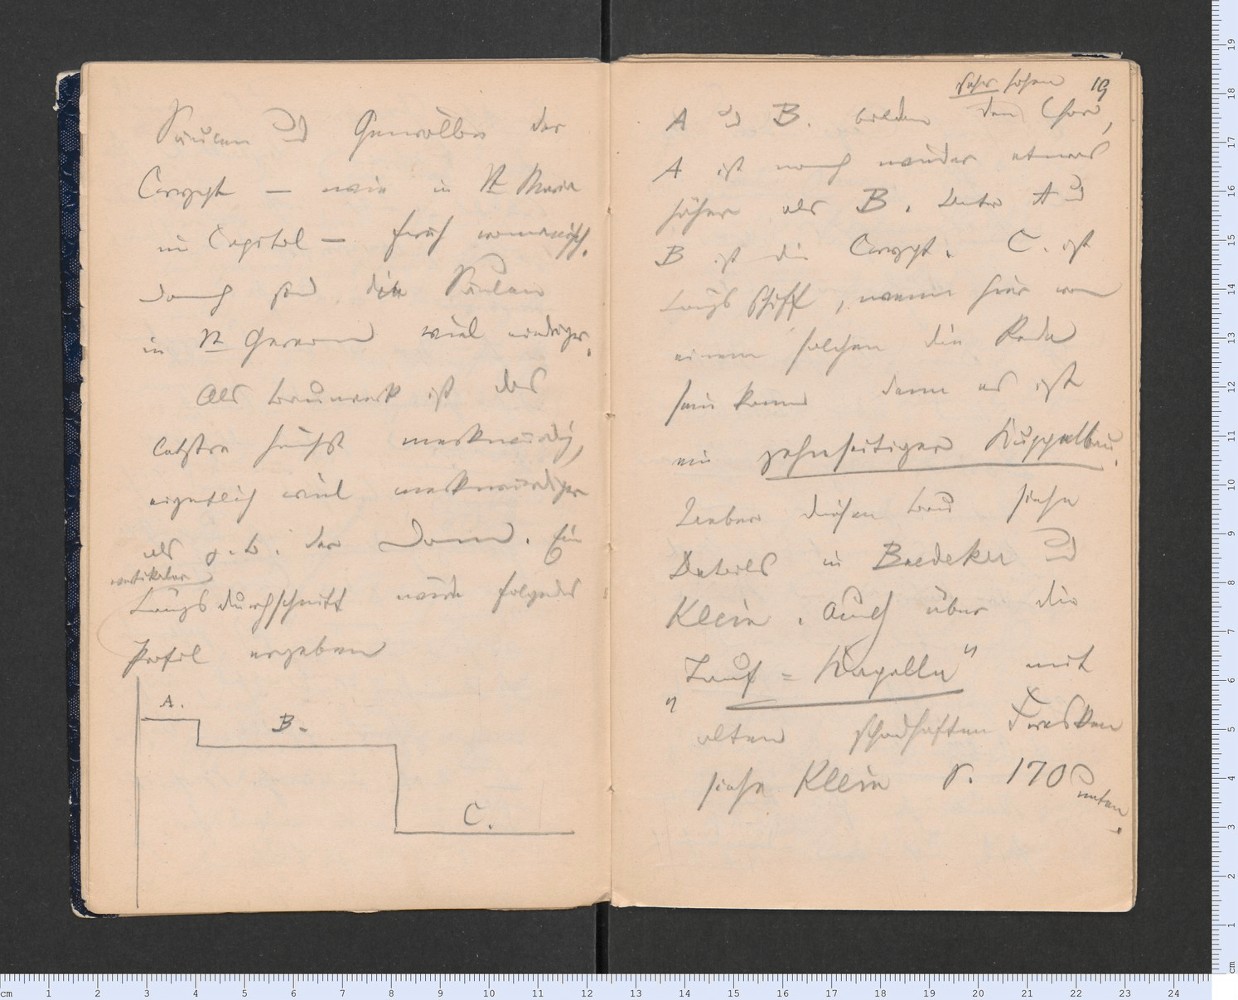 Säulen und Gewölbe der
Curypt — wie in St Maria
im Capitol — früh romanisch.
Doch sind die Säulen
in St Gereon viel niedriger.
Als Bauwerk ist das
letztre höchst merkwürdig,
eigentlich viel merkwürdiger
als z. B. der Dom. Ein
vertikaler
Längsdurchschnitt würde folgendes
Profil ergeben
A.
B.
C.
19
sehr hohen
A und B. bilden den Chor,
A ist noch wieder etwas
höher als B. Unter A und
B ist die Crypt. C. ist
Längsschiff, wenn hier von
einem solchen die Rede
sein kann denn es ist
ein zehnseitiger Kuppelbau.
Ueber diesen Bau siehe
Details in Baedeker und
Klein. Auch über die
„Tauf=Kapelle" mit
alten schadhaften Fresken
siehe Klein S. 170
unten.